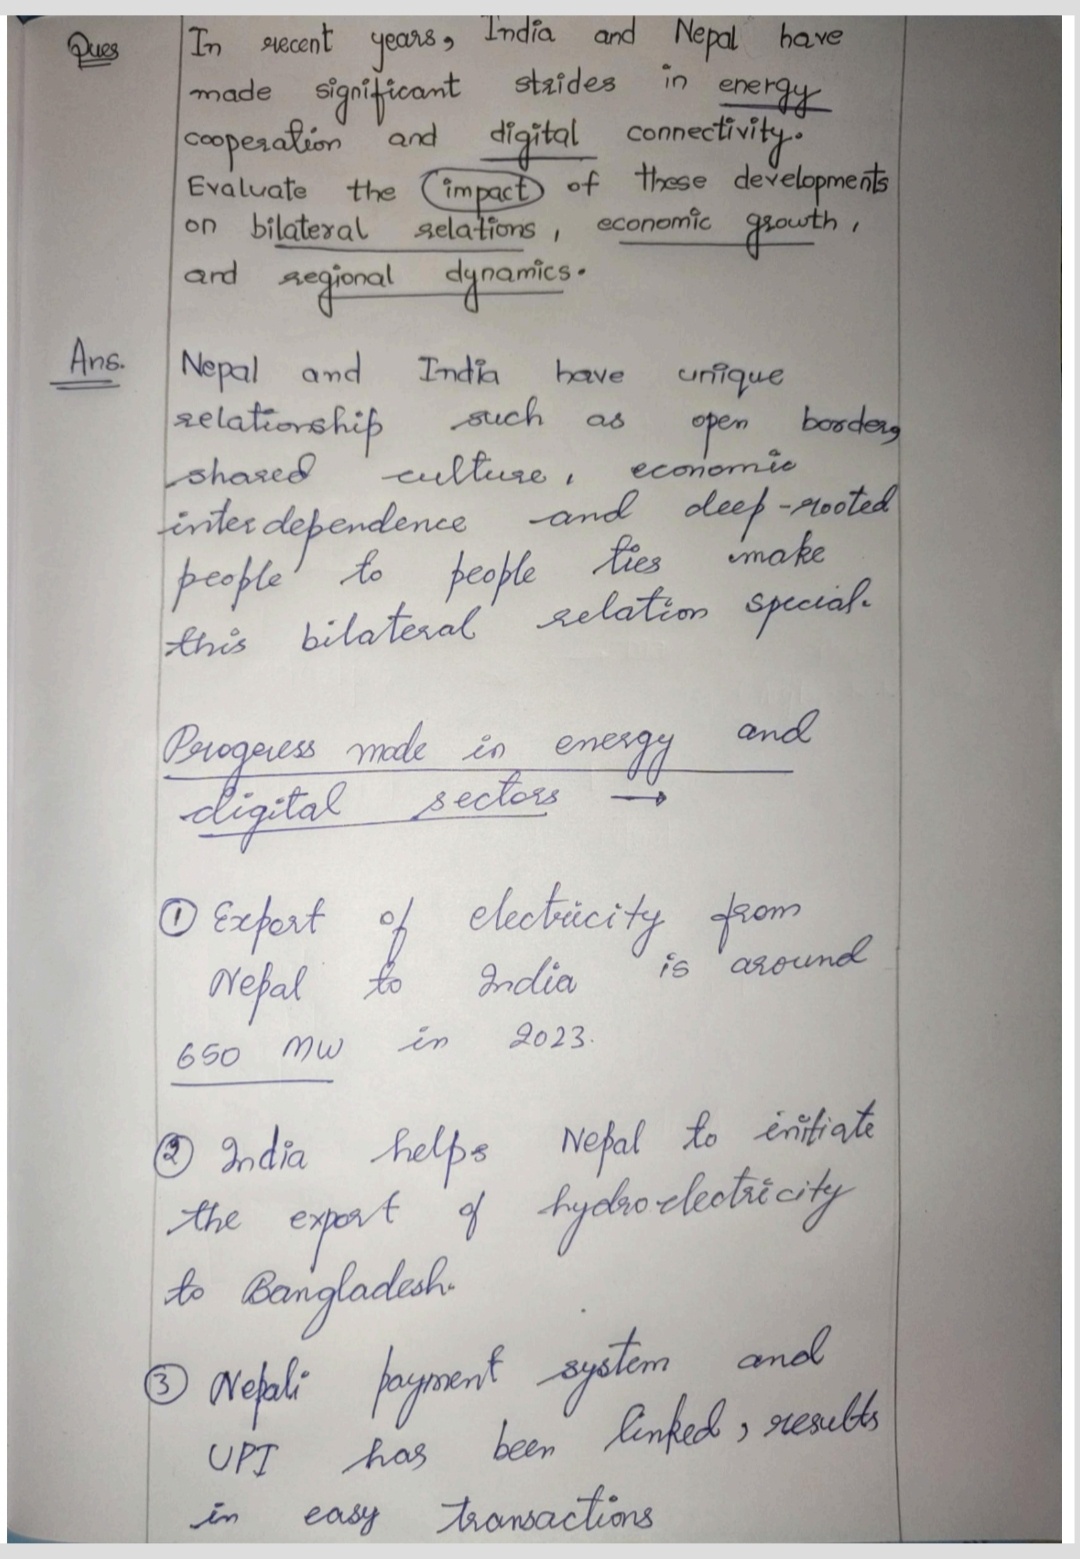 Ques
In recent years, India and Nepal have
made significant strides in energy
cooperation and digital connectivity.
Evaluate the impact of these developments
on bilateral relations, economic growth,
and regional dynamics.
Ans.
Nepal and India have unique
relationship such as open borders
shared culture, economic
interdependence and deep-rooted
people to people ties make
this bilateral relation special.
Progress made in energy and
digital sectors →
① Export of electricity from
Nepal to India is around
650 MW in 2023.
② India helps Nepal to initiate
the export of hydroelectricity
to Bangladesh.
③ Nepali payment system and
UPI has been linked, results
in easy transactions